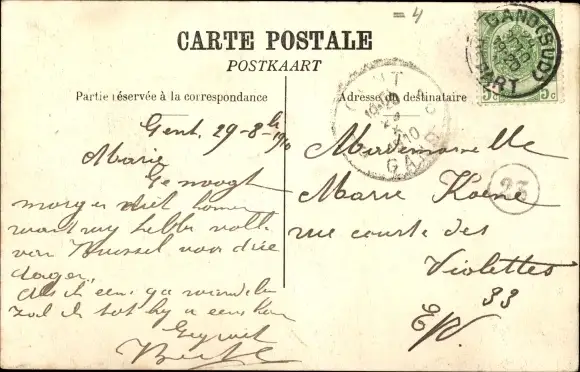 = 4
CARTE POSTALE
POSTKAART
Partie réservée à la correspondance
Adresse du destinataire
GAND (SUD)
DÉPART
5c 5c
GENT
GAND
23
Gent, 29-8-1910
Marie
Ge moogt
morgen niet komen
want wy hebben volk
van Brussel voor drie
dagen,
als ik eens ga wandelen
zal ik tot by u eens
Gegroet
Mademoiselle
Marie Koene
rue courte des
Violettes
33
E/V.